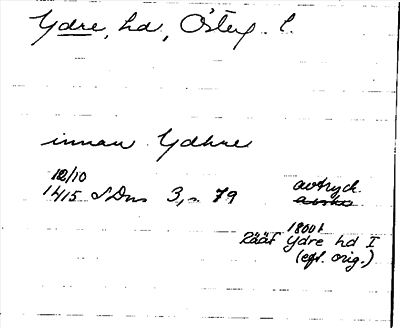 Ydre, hd, Österg. l.
innan Ydhre
12/10
1415 SDns 3, s. 79
avtryck.
1800 t
Rääf Ydre hd I
(efl. orig.)